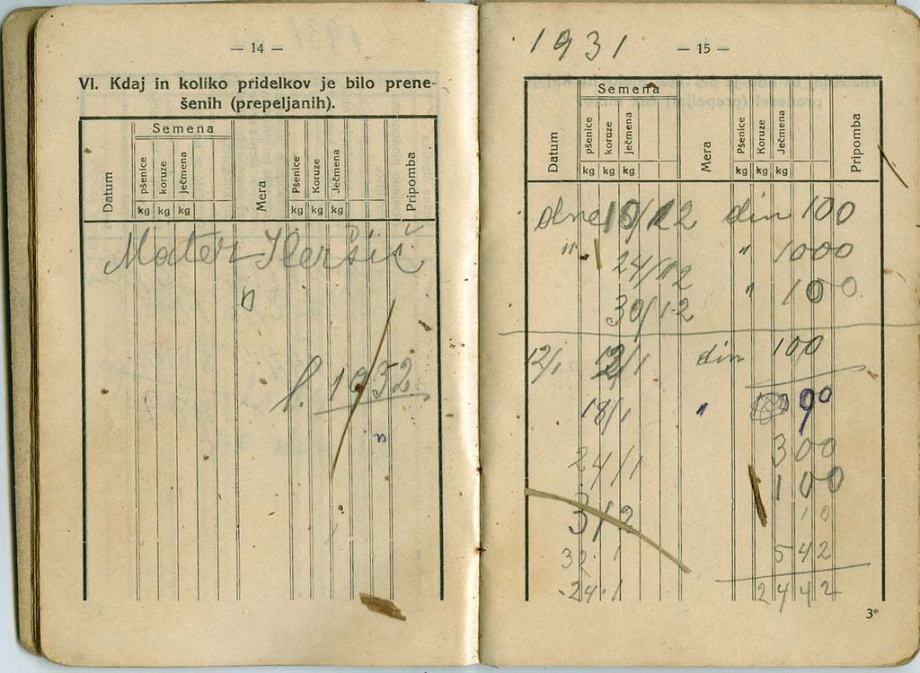 — 14 —
VI. Kdaj in koliko pridelkov je bilo prene-
šenih (prepeljanih).
Datum
Semena
pšenice
koruze
ječmena
Mera
Pšenice
Koruze
Ječmena
Pripomba
kg kg kg kg kg kg
Mater
l. 1932
1931
— 15 —
Datum
Semena
pšenice
koruze
ječmena
Mera
Pšenice
Koruze
Ječmena
Pripomba
kg kg kg kg kg kg
dne 10/12 din 100
" 24/12 " 1000
30/12 " 100
12/1 12/1 din 100
18/1 " 90
24/1 300
3/2 100
10
30.1 542
24.1 2442
3*